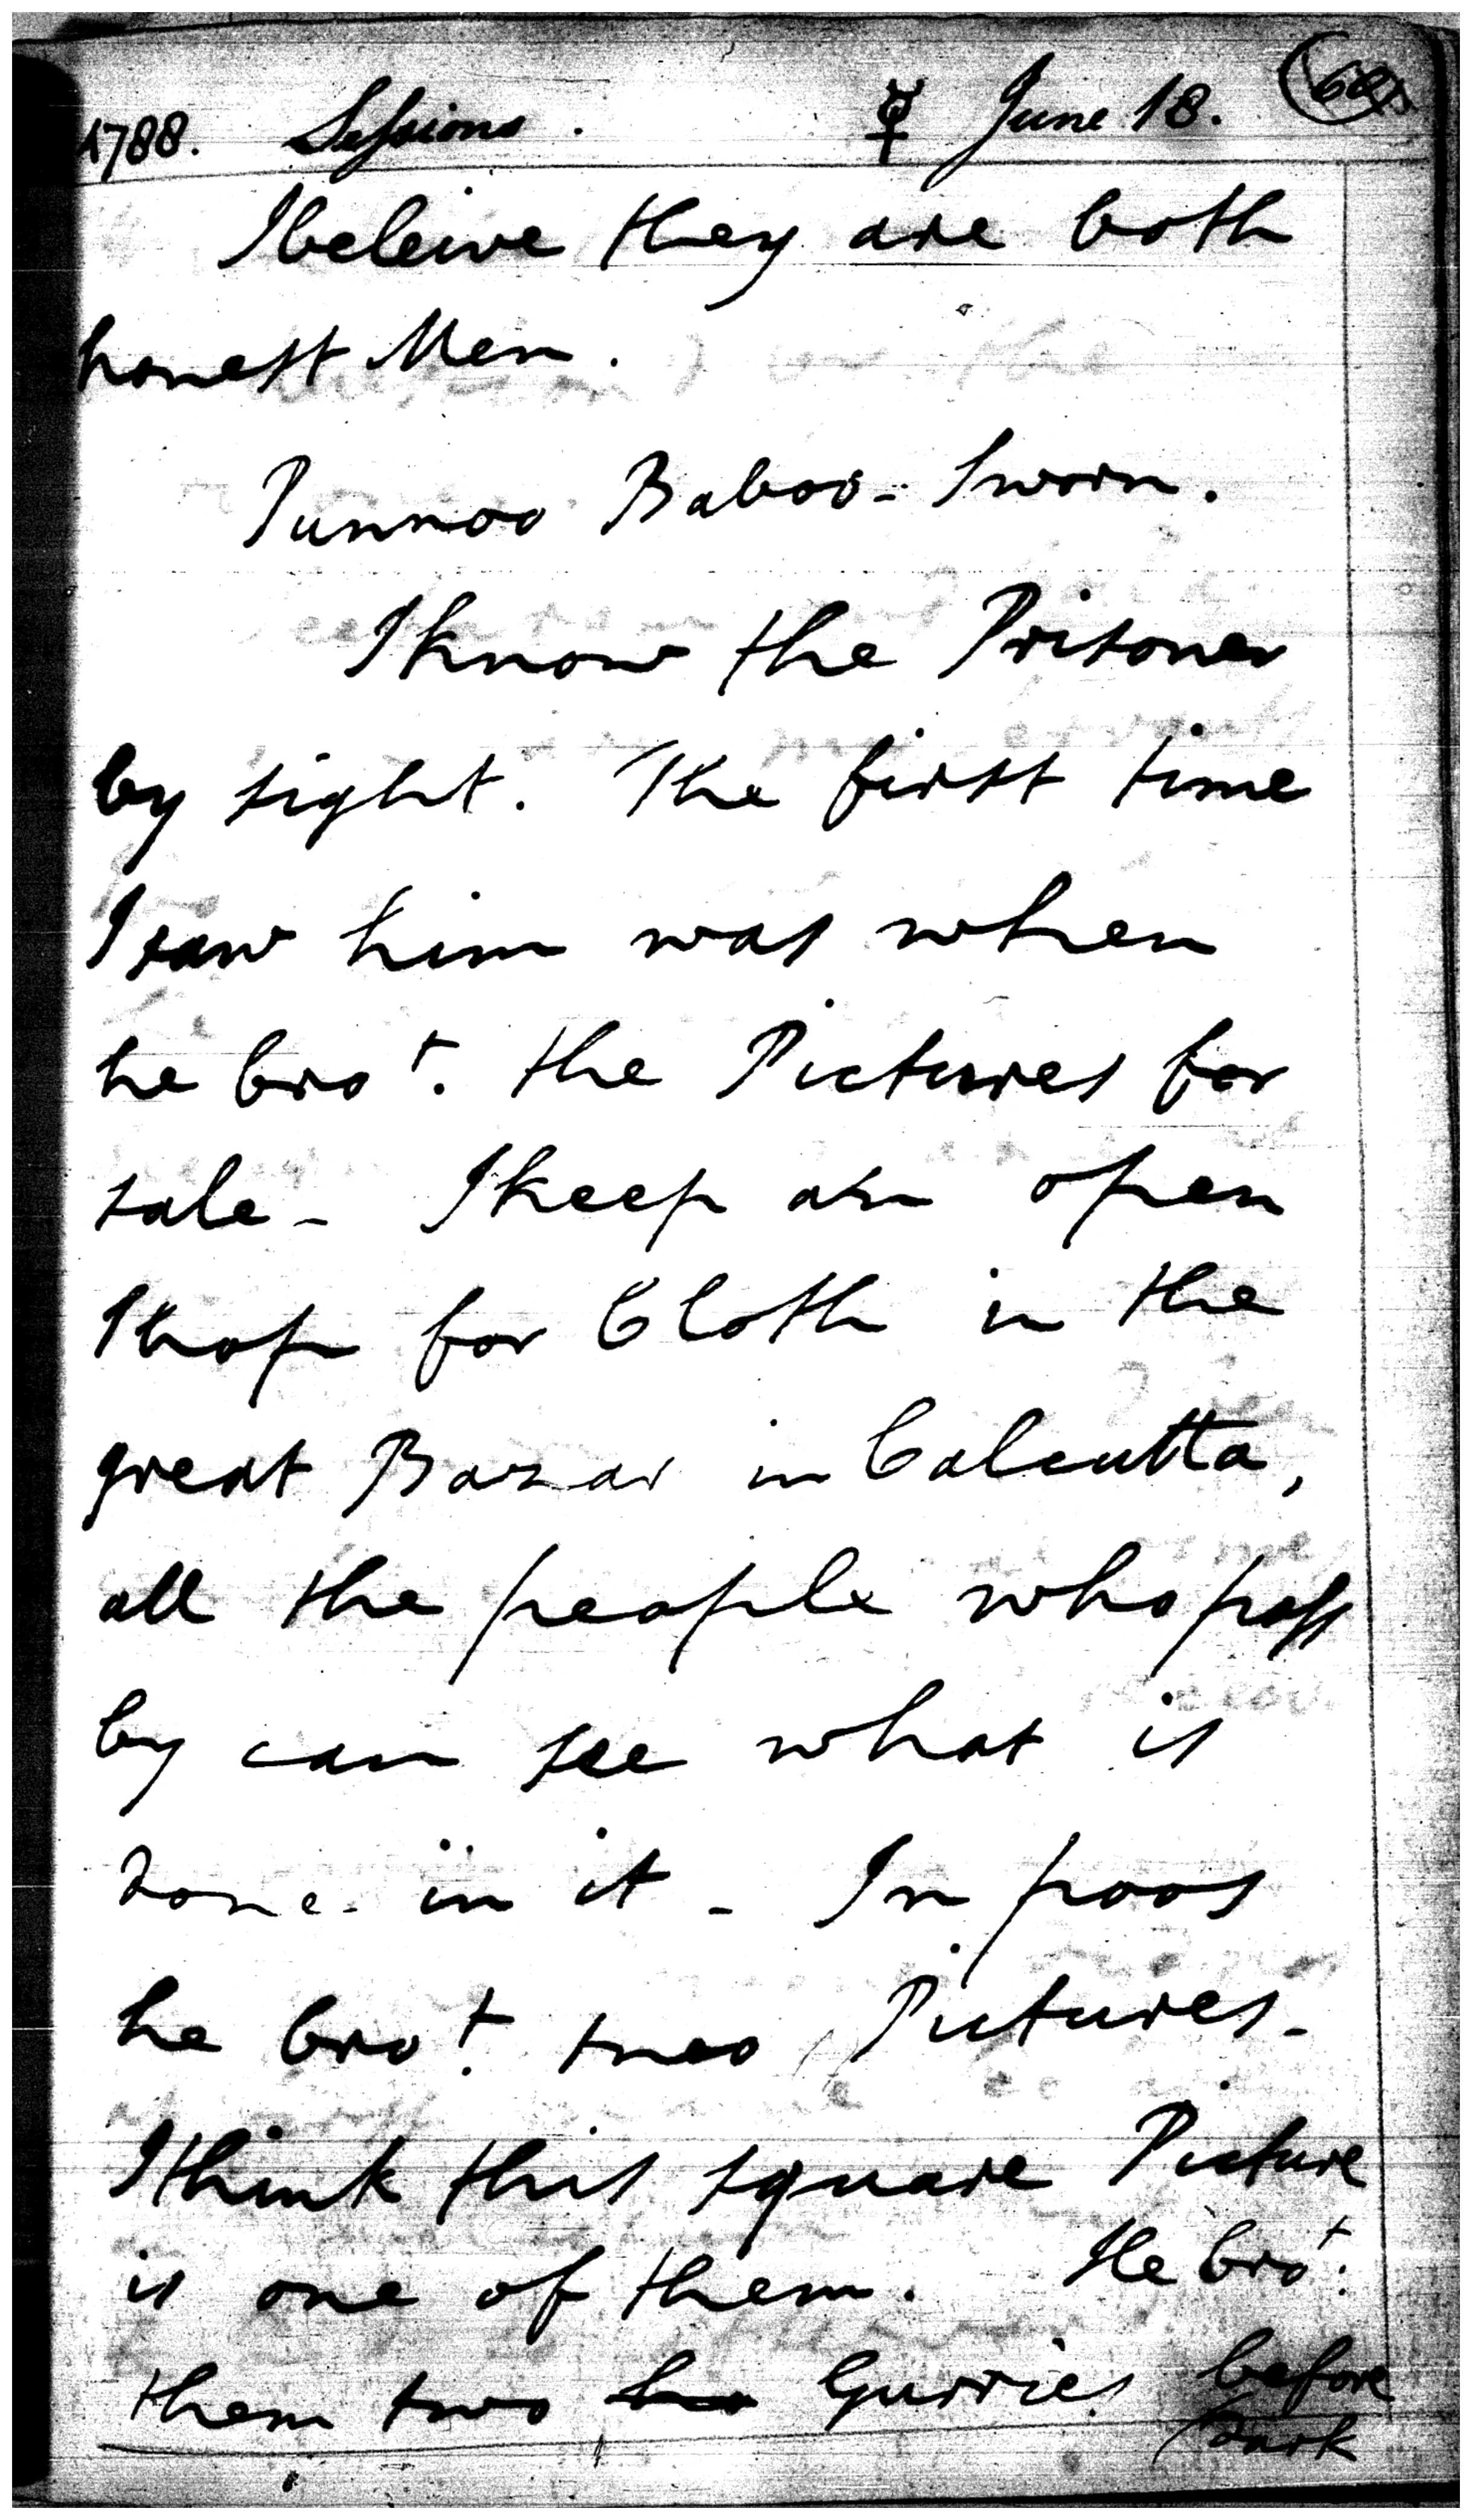 1788. Sessions. ☿ June 18.
I beleive they are both
honest Men.
Punnoo Baboo - Sworn.
I know the Prisoner
by sight. The first time
I saw him was when
he bro^t. the Pictures for
sale - I keep an open
Shop for Cloth in the
great Bazar in Calcutta,
all the people who pass
by can see what is
done in it - In poos
he bro^t. two Pictures -
I think this square Picture
is one of them. He bro^t.
them two Gurries before
dark